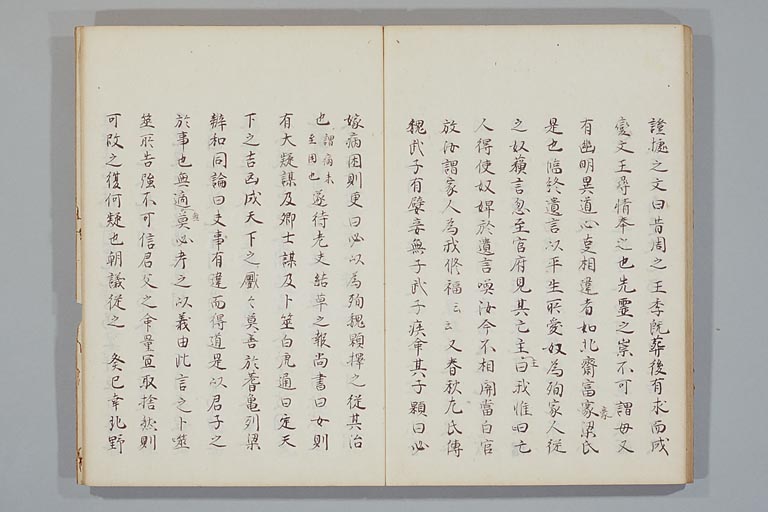 證據之文曰昔周之王季既葬後有求而成
變文王尋情奉之也先靈之祟不可謂毋又
有幽明異道心事相違者如北齊富家梁氏
豪
是也臨終遺言以平生所愛奴為殉家人從
之奴蘇言忽至官府見其亡主曰我惟曰亡
主
人得使奴婢於遺言喚汝今不相開當白官
放汝謂家人為我修福云云又春秋左氏傳
魏武子有嬖妾無子武子疾命其子顆曰必
嫁病困則更曰必以為殉魏顆擇之從其治
也謂病未至困也遂待老夫結草之報尚書曰女則
有大疑謀及卿士謀及卜筮白虎通曰定天
下之吉凶成天下之亹々莫善於蓍龜列梁
辨和同論曰夫事有違而得道是以君子之
於事也無適莫必考之以義由此言之卜噬
無
筮所告強不可信君父之命量宜取捨然則
可改之復何疑也朝議從之 癸巳幸北野